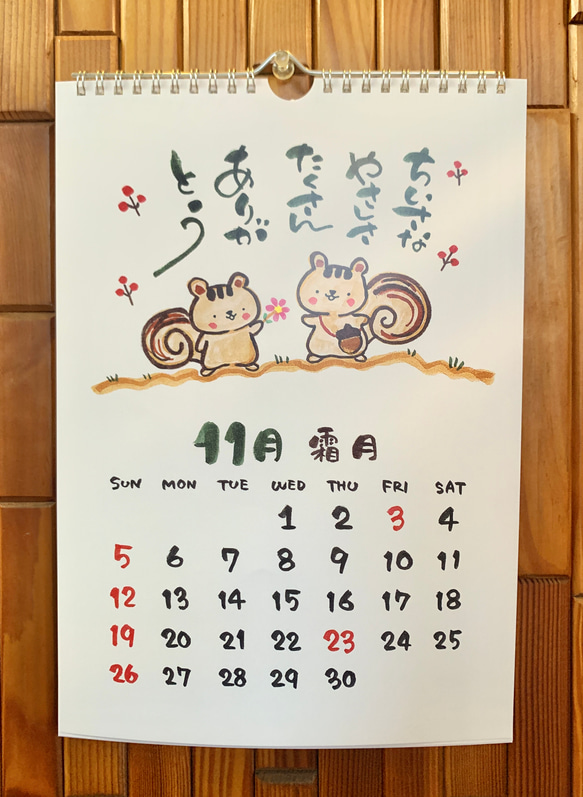 ちいさな
やさしさ
たくさん
ありが
とう
11月 霜月
SUN MON TUE WED THU FRI SAT
1 2 3 4
5 6 7 8 9 10 11
12 13 14 15 16 17 18
19 20 21 22 23 24 25
26 27 28 29 30